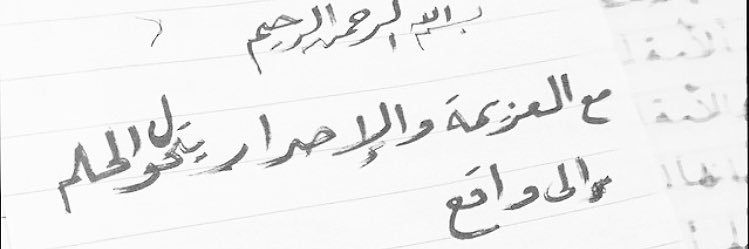 بسم الله الرحمن الرحيم
مع العزيمة والإصرار يتحول الحلم
إلى واقع